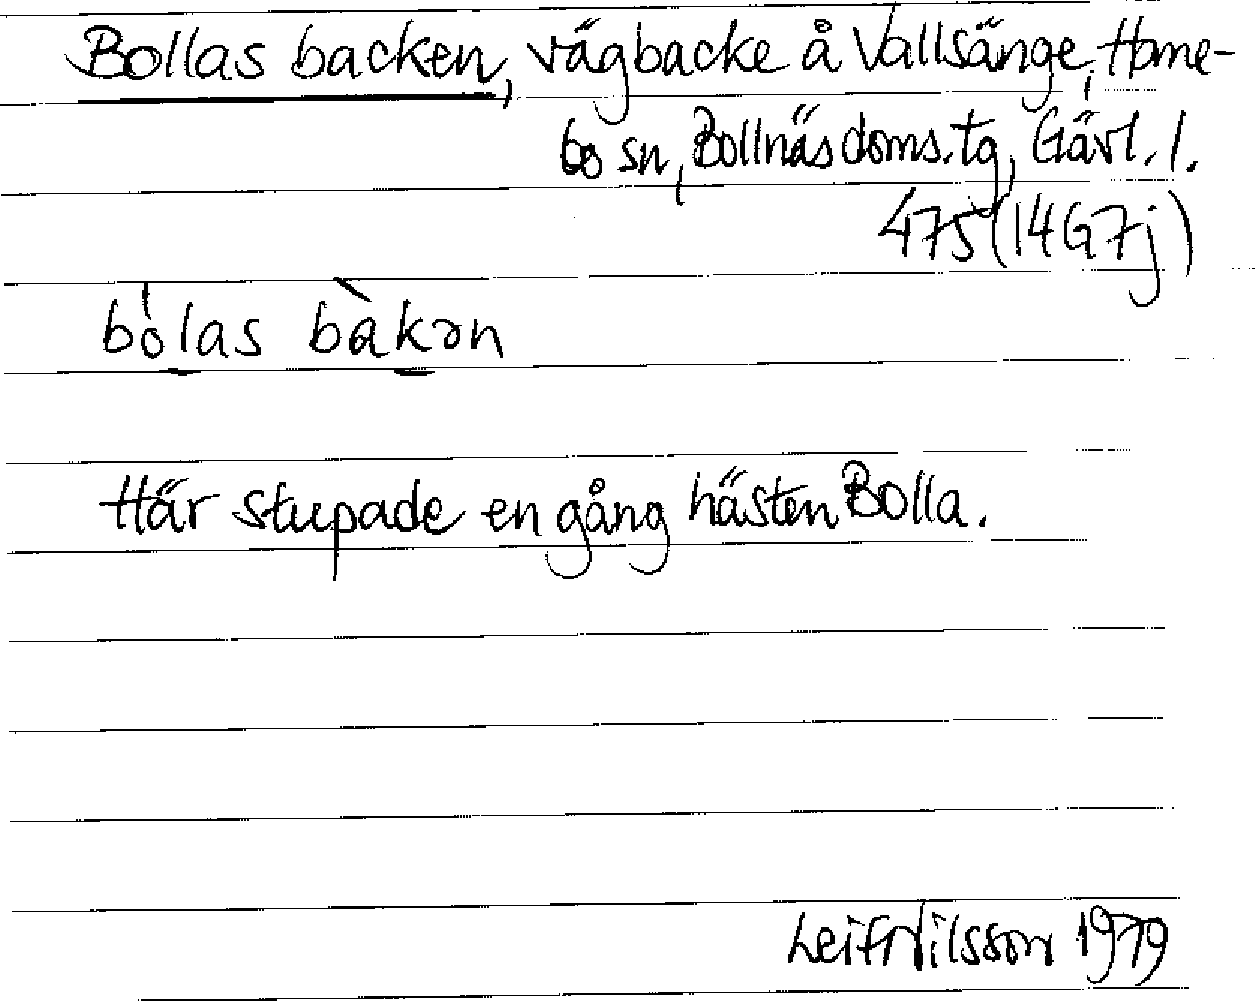 Bollas backen, vägbacke å Vallsänge, Hame-
bo sn, Bollnäs doms.tg, Gävl. l.
475 (14G7j)
bólas bàkən
Här stupade en gång hästen Bolla.
Leif Nilsson 1979